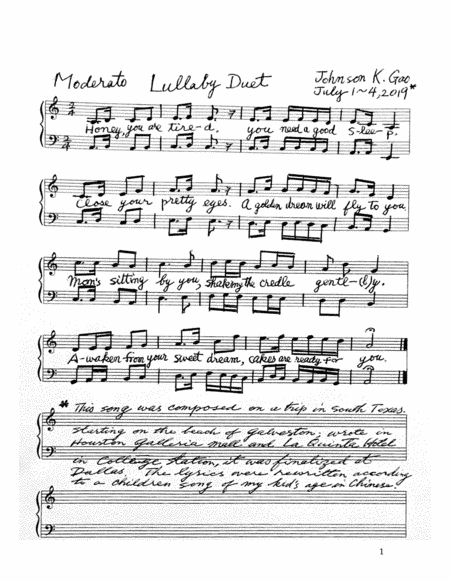 Moderato Lullaby Duet Johnson K. Gao
July 1~4, 2019*
Honey, you are tire-d. you need a good s-lee-p.
Close your pretty eyes. A golden dream will fly to you
Mom's sitting by you, shaking the credle gentle-(l)y.
A-waken from your sweet dream, cakes are ready for you.
* This song was composed on a trip in South Texas.
starting on the beach of Galveston; wrote in
Houston Galleria mall and La Quinta Hotel
in College Station, it was finalized at
Dallas. The lyrics were rewritten according
to a children song of my kid's age in Chinese.
1